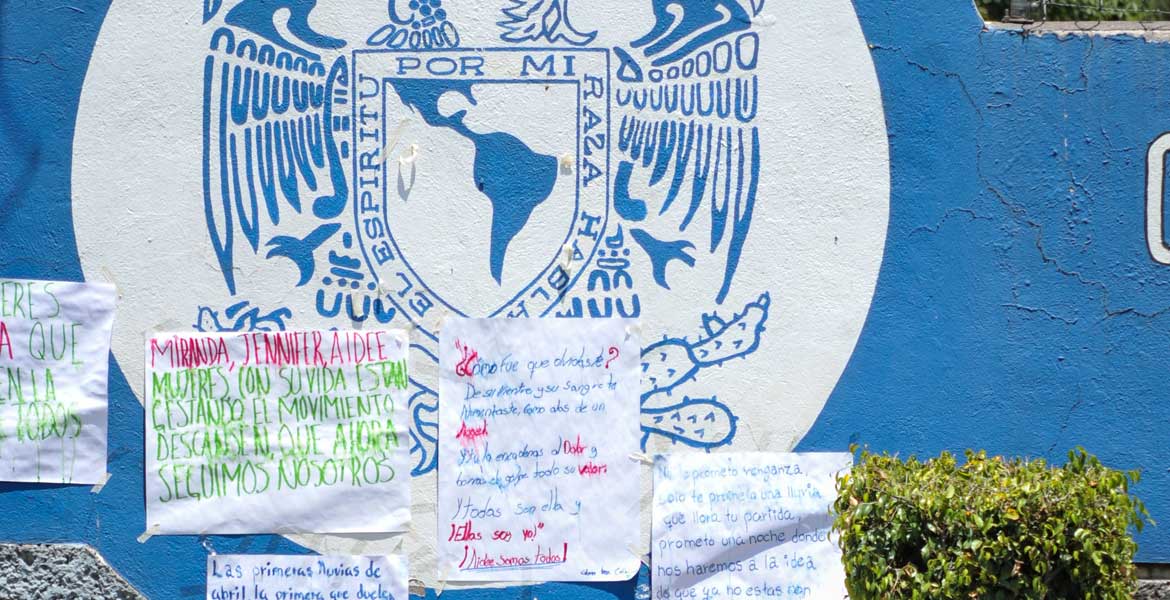 POR MI RAZA HABL
EL ESPIRITU
ERES
A QUE
EN LA
TODOS
MIRANDA, JENNIFER, AIDEE
MUJERES, CON SU VIDA ESTAN
GESTANDO EL MOVIMIENTO
DESCANSEN, QUE AHORA
SEGUIMOS NOSOTROS
¿Cómo fue que olvidaste?
De su vientre y su sangre te
alimentaste, como alas de un
Angel
Y tu la encadenas al Dolor y
tomas el golpe todo su valor.
Y todas son ella y
¡Ellas soy yo!"
¡Aidee Somos todas!
No te prometo venganza
solo te prometo una lluvia
que llora tu partida,
prometo una noche donde
nos haremos a la idea
de que ya no estas
Las primeras lluvias de
abril la primera que duela